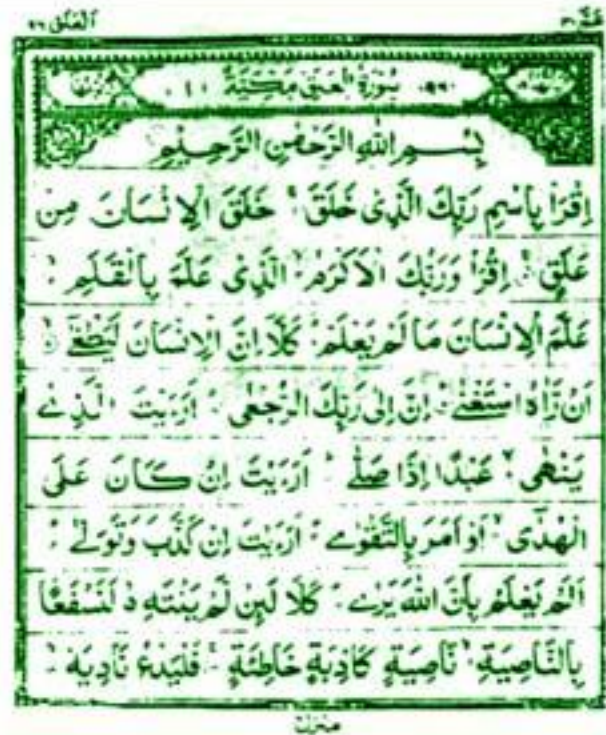 العلق ٩٦
عم ٣٠
سورة العلق مكية
بِسْمِ اللهِ الرَّحْمٰنِ الرَّحِيْمِ
اِقْرَاْ بِاسْمِ رَبِّكَ الَّذِىْ خَلَقَ خَلَقَ الْاِنْسَانَ مِنْ
عَلَقٍ اِقْرَاْ وَرَبُّكَ الْاَكْرَمُ الَّذِىْ عَلَّمَ بِالْقَلَمِ
عَلَّمَ الْاِنْسَانَ مَا لَمْ يَعْلَمْ كَلَّا اِنَّ الْاِنْسَانَ لَيَطْغٰے
اَنْ رَّاٰهُ اسْتَغْنٰے اِنَّ اِلٰى رَبِّكَ الرُّجْعٰى اَرَءَيْتَ الَّذِےْ
يَنْهٰى عَبْدًا اِذَا صَلّٰے اَرَءَيْتَ اِنْ كَانَ عَلَى
الْهُدٰٓى اَوْ اَمَرَ بِالتَّقْوٰے اَرَءَيْتَ اِنْ كَذَّبَ وَتَوَلّٰے
اَلَمْ يَعْلَمْ بِاَنَّ اللهَ يَرٰے كَلَّا لَئِنْ لَّمْ يَنْتَهِ لَنَسْفَعًا
بِالنَّاصِيَةِ نَاصِيَةٍ كَاذِبَةٍ خَاطِئَةٍ فَلْيَدْعُ نَادِيَهٗ